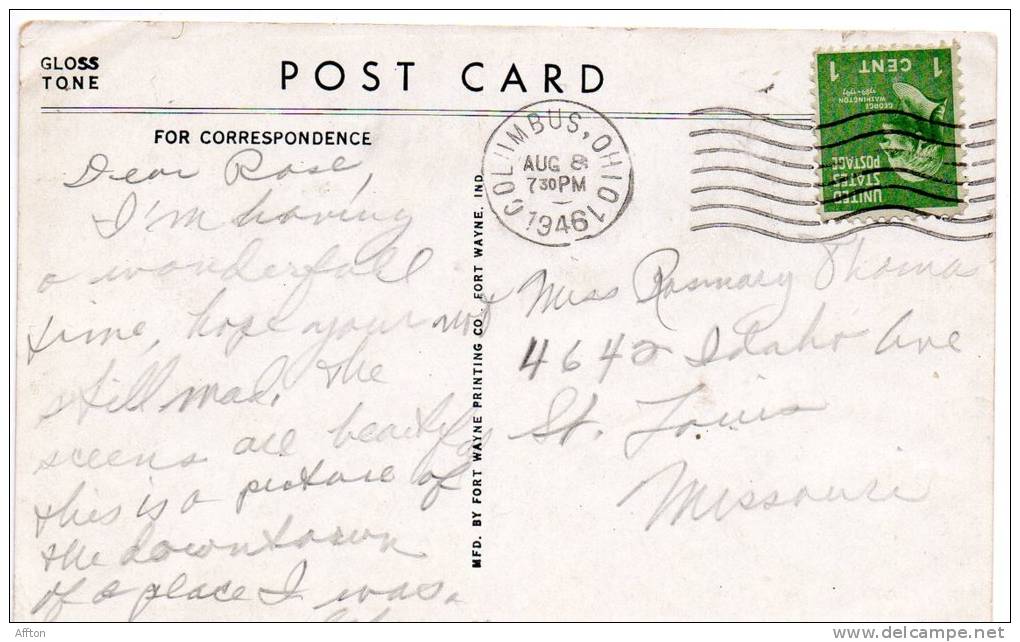 GLOSS
TONE
POST CARD
FOR CORRESPONDENCE
Dear Rose,
I'm having
a wonderfull
time, hope your not
still mad. The
sceens are beautiful
this is a picture of
the downtown
of a place I was.
MFD. BY FORT WAYNE PRINTING CO., FORT WAYNE, IND.
COLUMBUS, OHIO 1
AUG 8
7 30 PM
1946
1 CENT 1
GEORGE
WASHINGTON
1789-1797
UNITED
STATES
POSTAGE
Miss Rosmary Thomas
4642 Idaho Ave
St. Louis
Missouri
Affton
delcampe.net